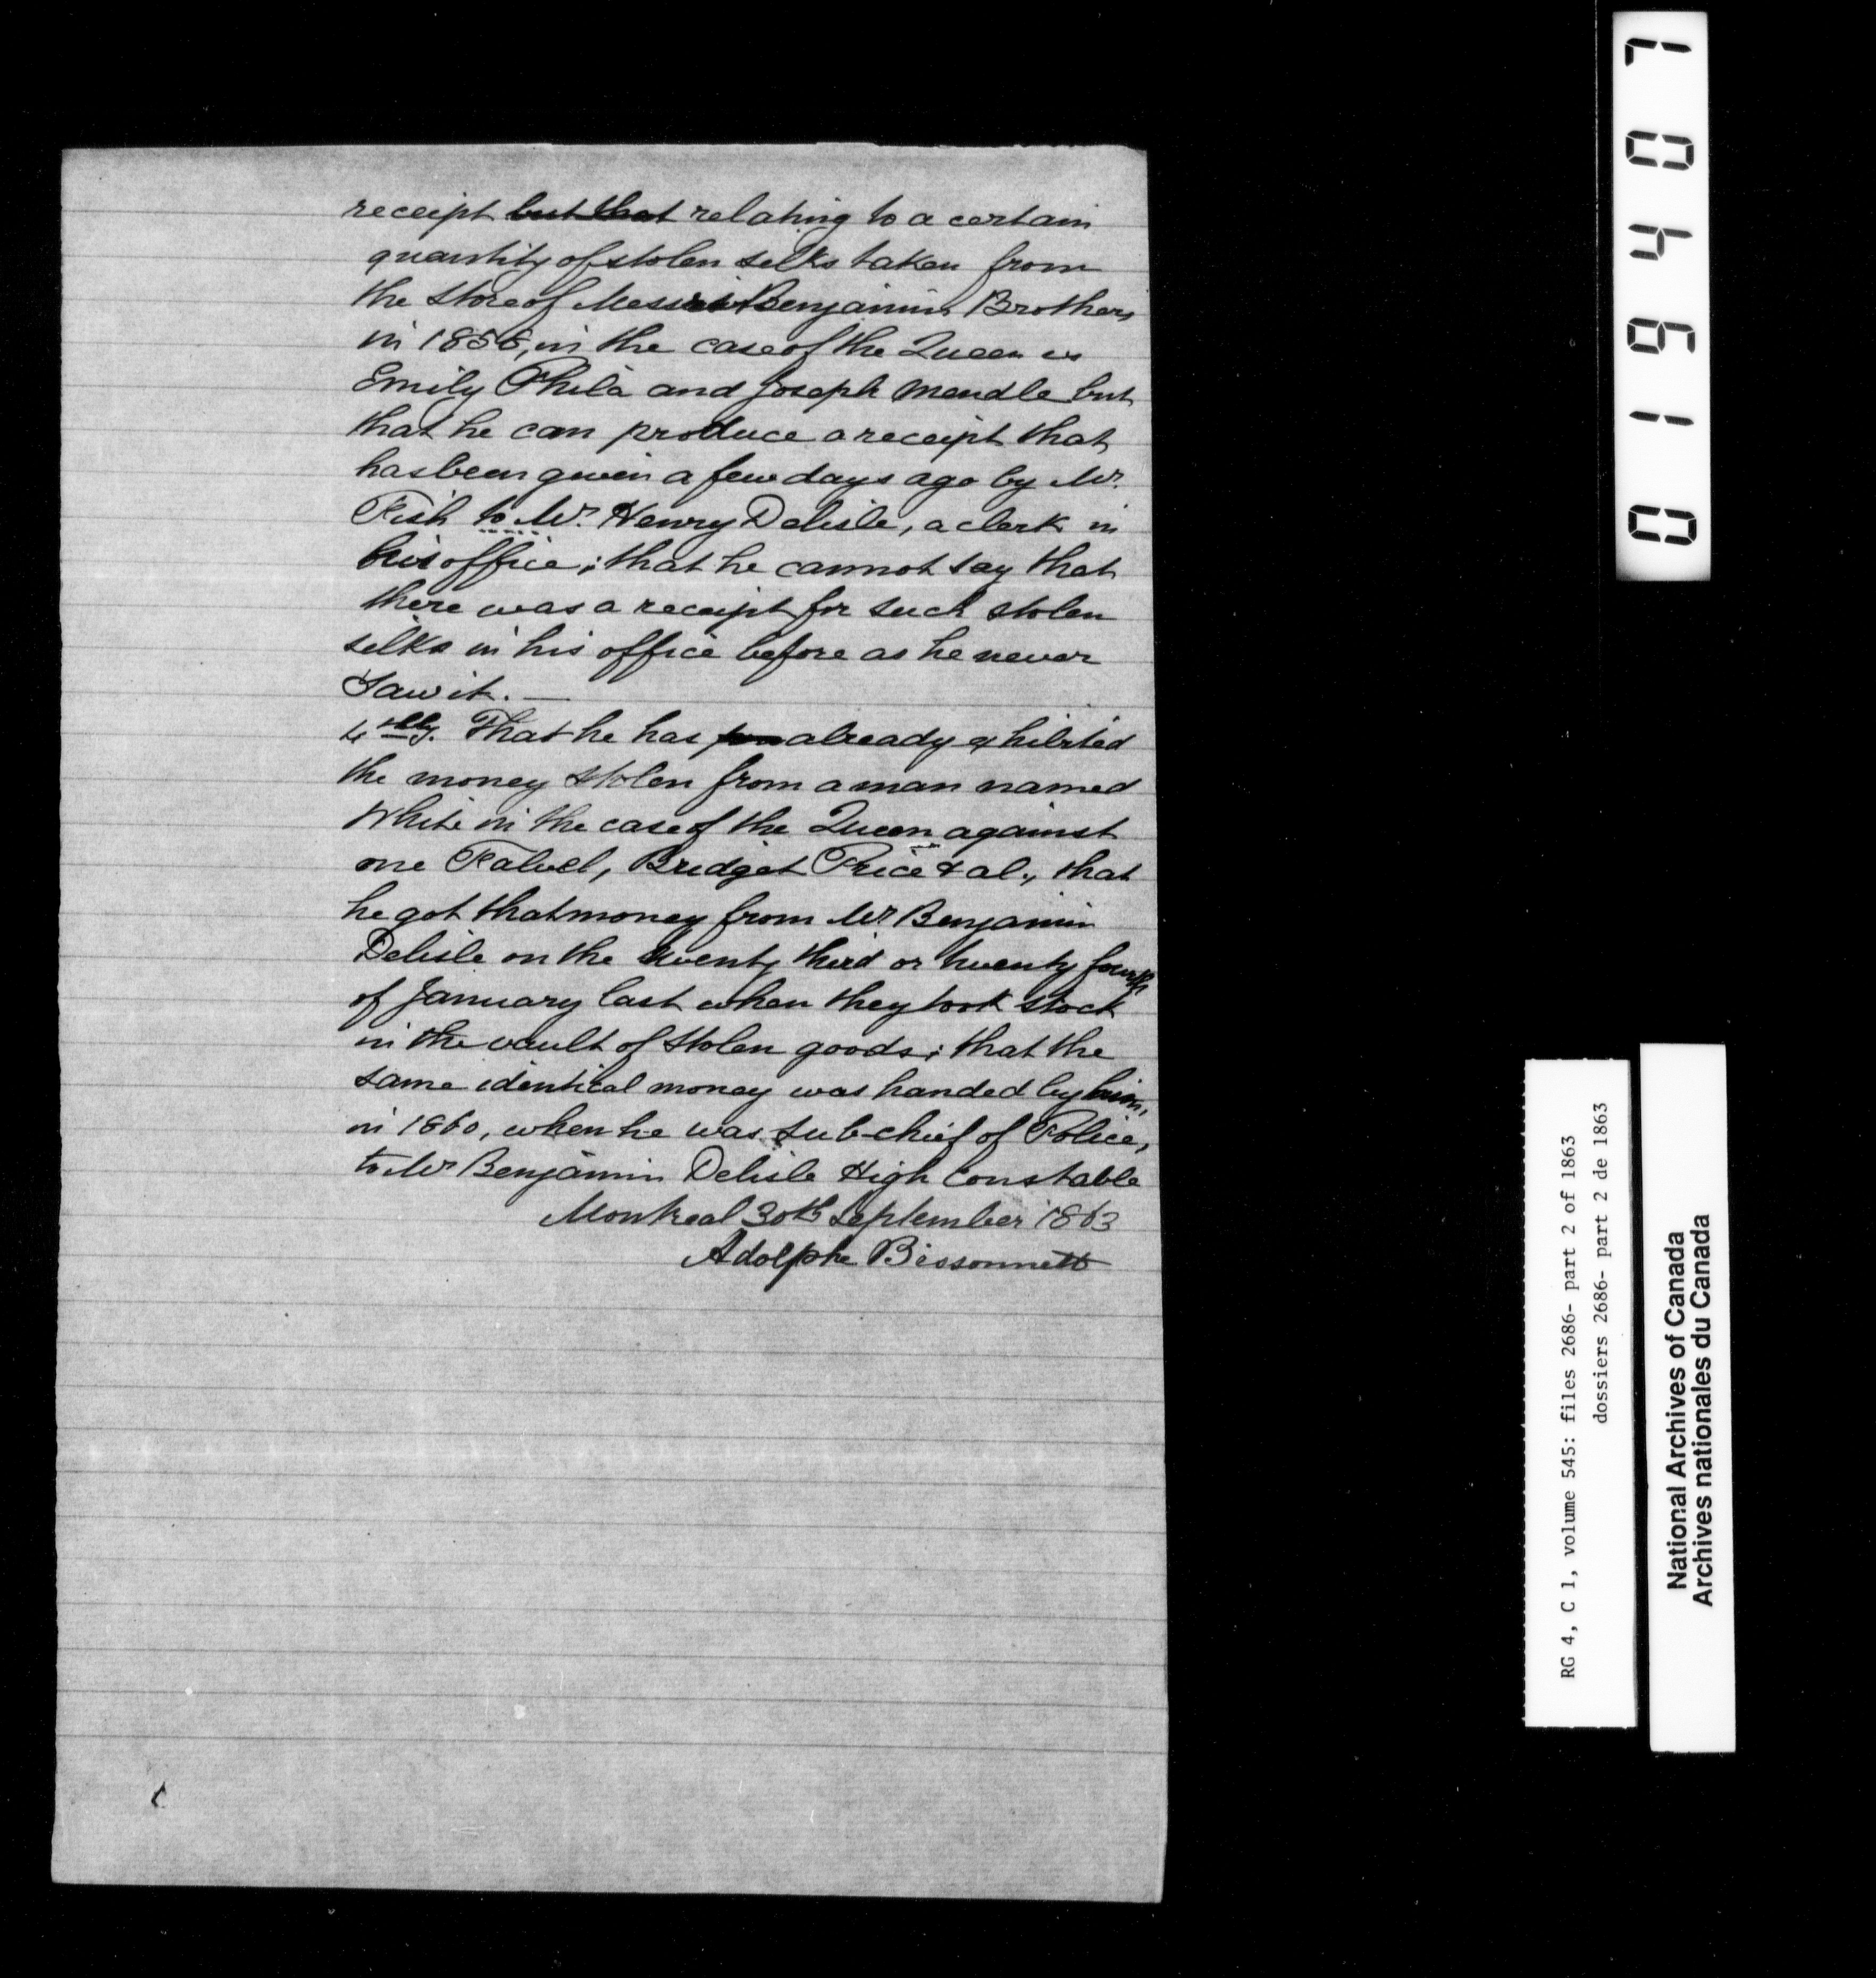 receipt but that relating to a certain
quantity of stolen silks taken from
the store of Messrs Benjamin Brothers
in 1856, in the case of the Queen vs
Emily Phila and Joseph Mendle but
that he can produce a receipt that
has been given a few days ago by Mr.
Fish to Mr. Henry Delisle, a clerk in
his office; that he cannot say that
there was a receipt for such stolen
silks in his office before as he never
saw it. —
4thly. That he has already exhibited
the money stolen from a man named
White in the case of the Queen against
one Falvel, Bridget Price & al., that
he got that money from Mr. Benjamin
Delisle on the twenty third or twenty fourth
of January last when they took stock
in the vault of stolen goods; that the
same identical money was handed by him,
in 1860, when he was sub-chief of Police,
to Mr Benjamin Delisle High Constable
Montreal 30th September 1863
Adolphe Bissonnett
019407
RG 4, C 1, volume 545: files 2686- part 2 of 1863
dossiers 2686- part 2 de 1863
National Archives of Canada
Archives nationales du Canada